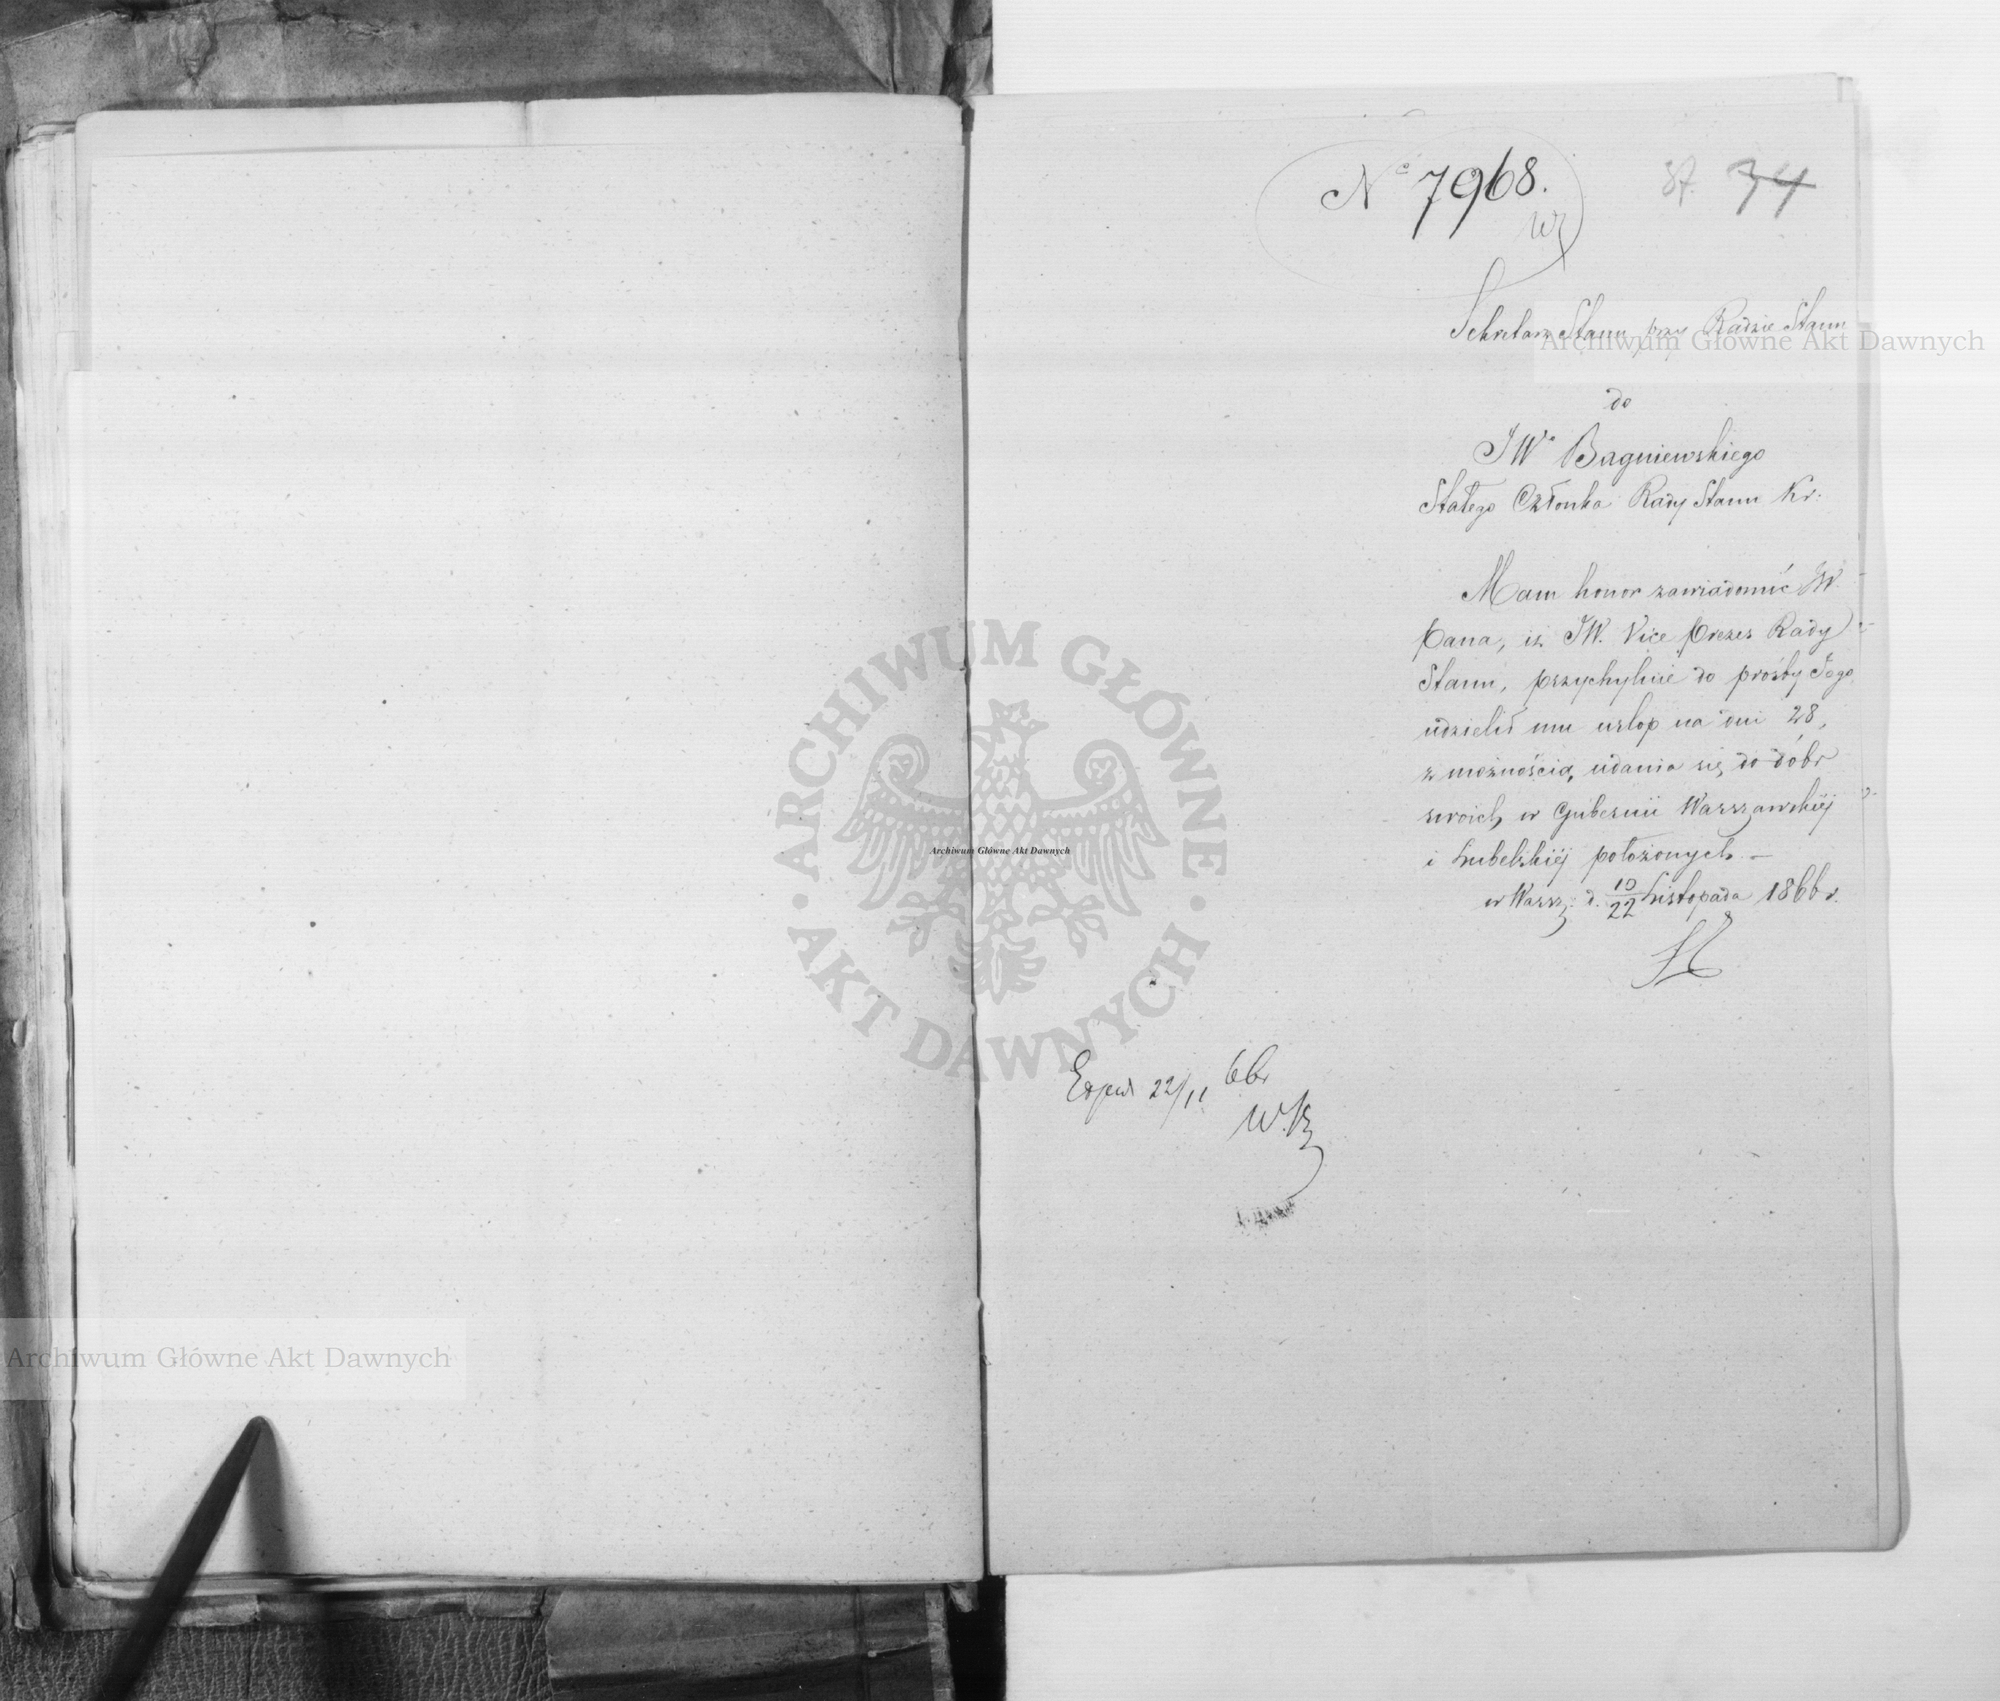 No 7968.
37. 34
Sekretarz Stanu przy Radzie Stanu
do
JWo Bagniewskiego
Stałego Członka Rady Stanu Kr:
Mam honor zawiadomić JW.
Pana, iż JW. Vice Prezes Rady
Stanu, przychylnie do prośby Jego,
udzielił mu urlop na dni 28,
z możnością udania się do dóbr
swoich w Gubernii Warszawskiéj
i Lubelskiéj położonych. —
w Warsz: d. 10/22 Listopada 1866 r.
22/11 66r
Archiwum Główne Akt Dawnych
ARCHIWUM GŁÓWNE
AKT DAWNYCH
Archiwum Główne Akt Dawnych
Archiwum Główne Akt Dawnych